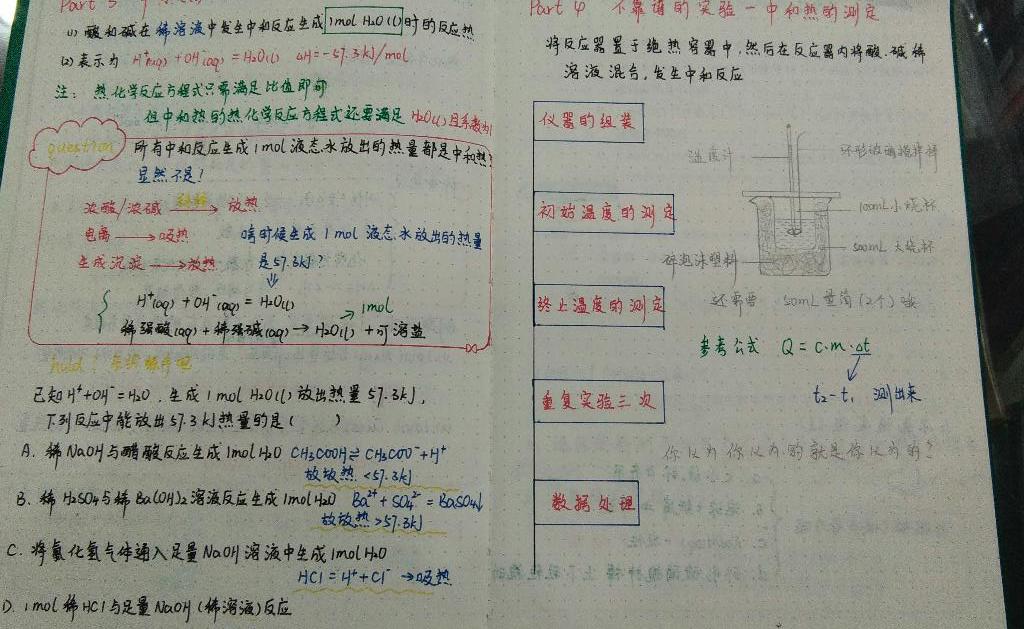 Part 3
(1) 酸和碱在稀溶液中发生中和反应生成1mol H₂O(l)时的反应热
(2) 表示为 H⁺(aq) + OH⁻(aq) = H₂O(l) ΔH = -57.3kJ/mol
注: 热化学反应方程式只需满足比值即可
但中和热的热化学反应方程式还要满足 H₂O(l)且系数为1
question
所有中和反应生成1mol液态水放出的热量都是中和热?
显然不是!
浓酸/浓碱 稀释→ 放热
电离 → 吸热
生成沉淀 → 放热
啥时候生成1mol液态水放出的热量
是57.3kJ?
H⁺(aq) + OH⁻(aq) = H₂O(l)
1mol
稀强酸(aq) + 稀强碱(aq) → H₂O(l) + 可溶盐
hold!
已知H⁺+OH⁻=H₂O,生成1mol H₂O(l)放出热量57.3kJ,
下列反应中能放出57.3kJ热量的是( )
A. 稀NaOH与醋酸反应生成1mol H₂O CH₃COOH⇌CH₃COO⁻+H⁺
故放热<57.3kJ
B. 稀H₂SO₄与稀Ba(OH)₂溶液反应生成1mol H₂O Ba²⁺+SO₄²⁻=BaSO₄↓
故放热>57.3kJ
C. 将氯化氢气体通入足量NaOH溶液中生成1mol H₂O
HCl=H⁺+Cl⁻ →吸热
D. 1mol稀HCl与足量NaOH(稀溶液)反应
Part 4 不靠谱的实验—中和热的测定
将反应器置于绝热容器中,然后在反应器内将酸、碱稀
溶液混合,发生中和反应
仪器的组装
初始温度的测定
终止温度的测定
重复实验三次
数据处理
温度计
环形玻璃搅拌棒
100mL小烧杯
500mL大烧杯
碎泡沫塑料
还需要 50mL量筒(2个)哦
参考公式 Q=c·m·Δt
t₂-t₁ 测出来
你以为你以为的就是你以为的?